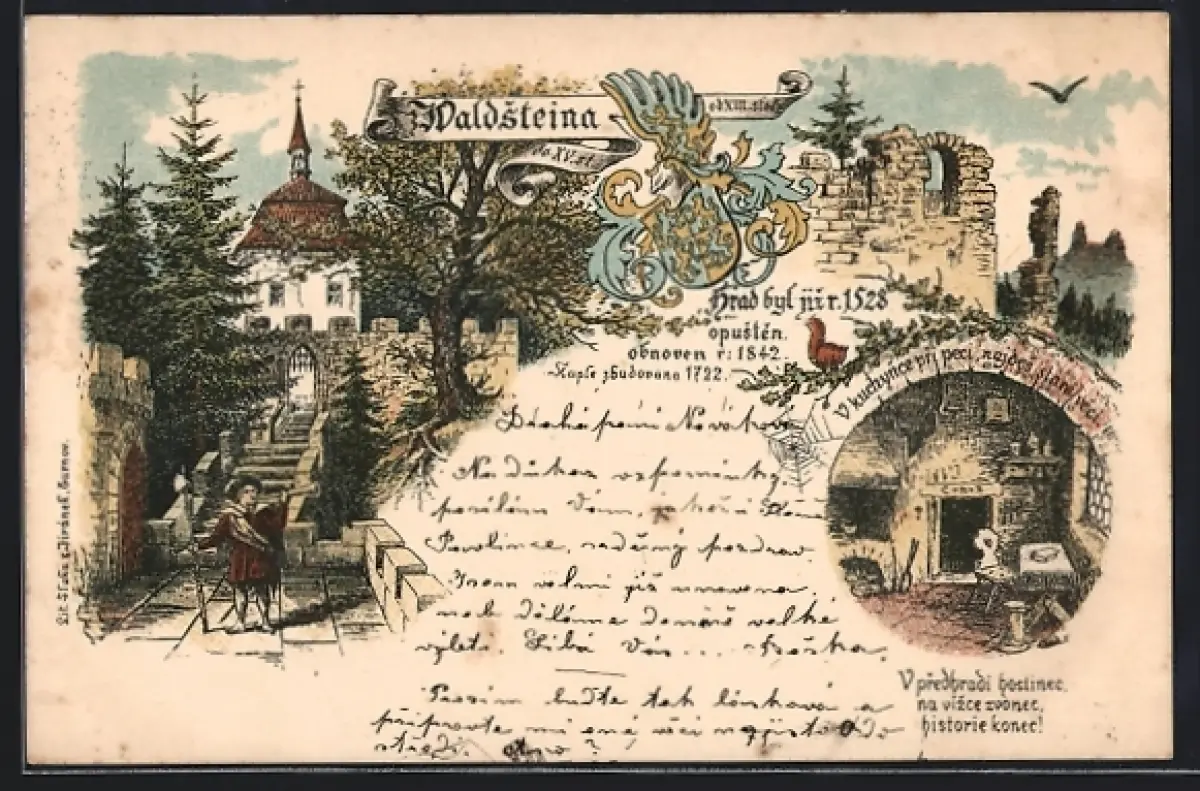 Waldšteina
od XIII. stol.
do XV. st.
Hrad byl již r. 1528
opuštěn.
obnoven r: 1842.
Kaple zbudována 1722.
V kuchyňce při peci, najdeš
Drahá paní Nováková
Na důkaz vzpomínky
posílám Vám, a
Pavlince, srdečný pozdrav
Jsem velmi již unavena,
neb děláme denně velké
výlety. Líbá Vás...
Prosím buďte tak láskavá a
připravte mi
středy. Ano?
V předhradí hostinec,
na vížce zvonec,
historie konec!